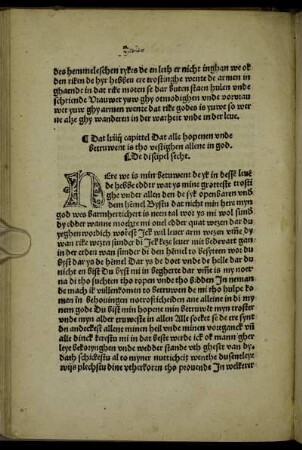 des hemmeleschen rykes de en leth er nicht inghan we ok
den riken de hyr hebben ere trostinghe wente de armen in
ghaende in dat rike moten se dar buten staen hulen vnde
schriende Vrauwet yuw ghy otmodighen vnde vorvrau
wet yuw ghy armen wente dat rike godes is yuwe so wer
ne alze ghy wanderen in der warheit vnde in der leue.
¶ Dat capittel Dat alle hopenen vnde
betruwent is tho vestighen allene in god.
¶ De discipel secht.
HEre we is min betruwent de yk in desse leue
de hebbe edder wat ys mine groteste trost
ghe vnder allen den de syk openbaren vnd
dem hemel Bystu dat nicht min here myn
god wes barmherticheit is nen tal wor ys mi wol sun
dy edder wanne mochte mi ouel edder quat wezen dar du
yeghenwordich woldest Jck wil leuer arm wezen vmme dy
wan rike wezen sunder di Jck keze leuer mit di bedevart gan
in der erden wan sunder di den hemel to besytten wor du
byst dar ys de hemel Dar ys de doet vnde de helle dar du
nicht en bist Du byst mi in begherte dar vmme is my noet
na di tho suchten tho ropen vnde tho bidden Jn neman
de mach ik vullenkomen to betruwen de mi tho hulpe ko
men in behouingen notroftichciden ane alleine in di my
nem gode Du bist min hopent min betruwent myn trost
vnde myn alder truweste in allen Alle soeket se de ere sunt
du andeckest alleine minen heil vnde minen vortganck vnde
alle dinck kerestu mi in dat beste werde ick ok mannigher
leye bekoringhen vnde wedder stande vth ghesat van dy
dath schickestu al to myner nutticheit wenthe du
wijs plechstu dine vtherkoren tho prouende Jn welkerer